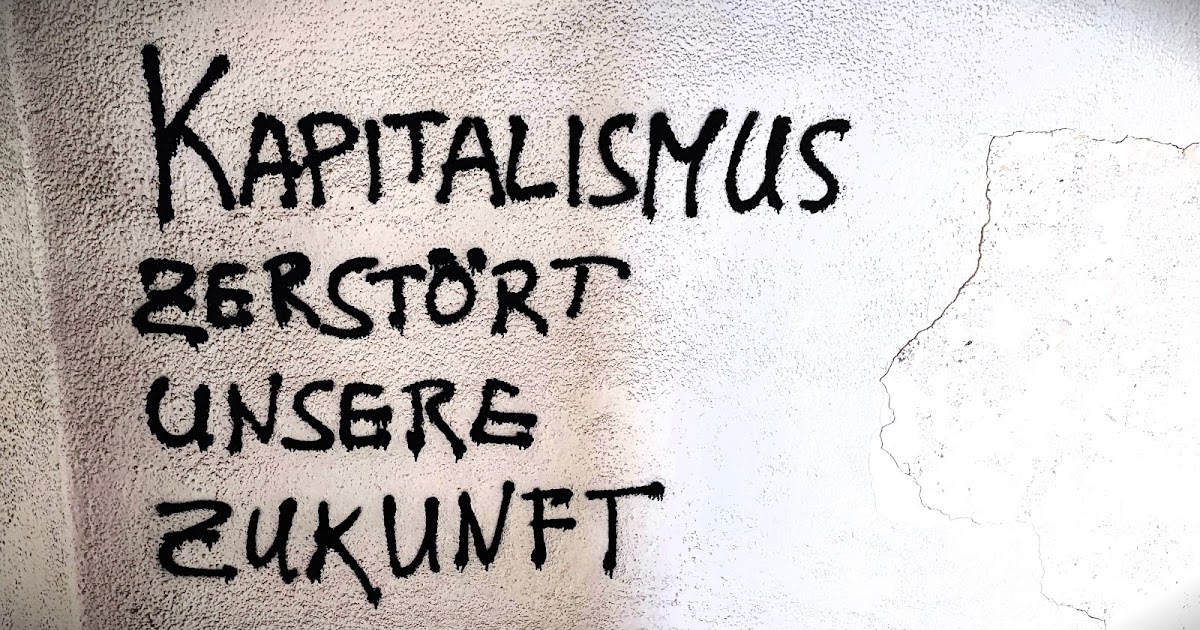 KAPITALISMUS
ZERSTÖRT
UNSERE
ZUKUNFT